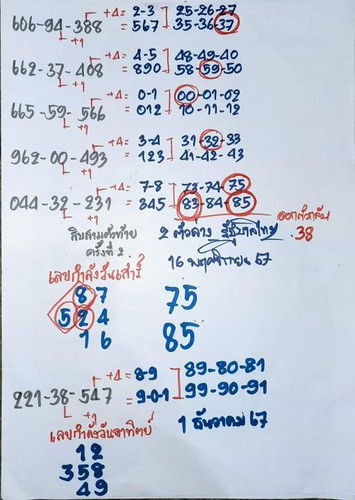 606-94-388 +4 = 2-3 25-26-27
+1 = 567 35-36-37
662-37-408 +4 = 4-5 48-49-40
+1 = 890 58-59-50
665-59-566 +4 = 0-1 00-01-02
+1 = 012 10-11-12
962-00-493 +4 = 3-4 31-32-33
+1 = 123 41-42-43
044-32-231 +4 = 7-8 73-74-75
+1 = 345 83-84-85
สิบสามตัวท้าย 2 ตัวล่าง รัฐบาลไทย
ครั้งที่ 2 38
16 พฤศจิกายน 67
เลขกำลังวันเสาร์
87 75
524
16 85
221-38-547 +4 = 8-9 89-80-81
+1 = 9-0-1 99-90-91
เลขกำลังวันอาทิตย์ 1 ธันวาคม 67
12
358
49